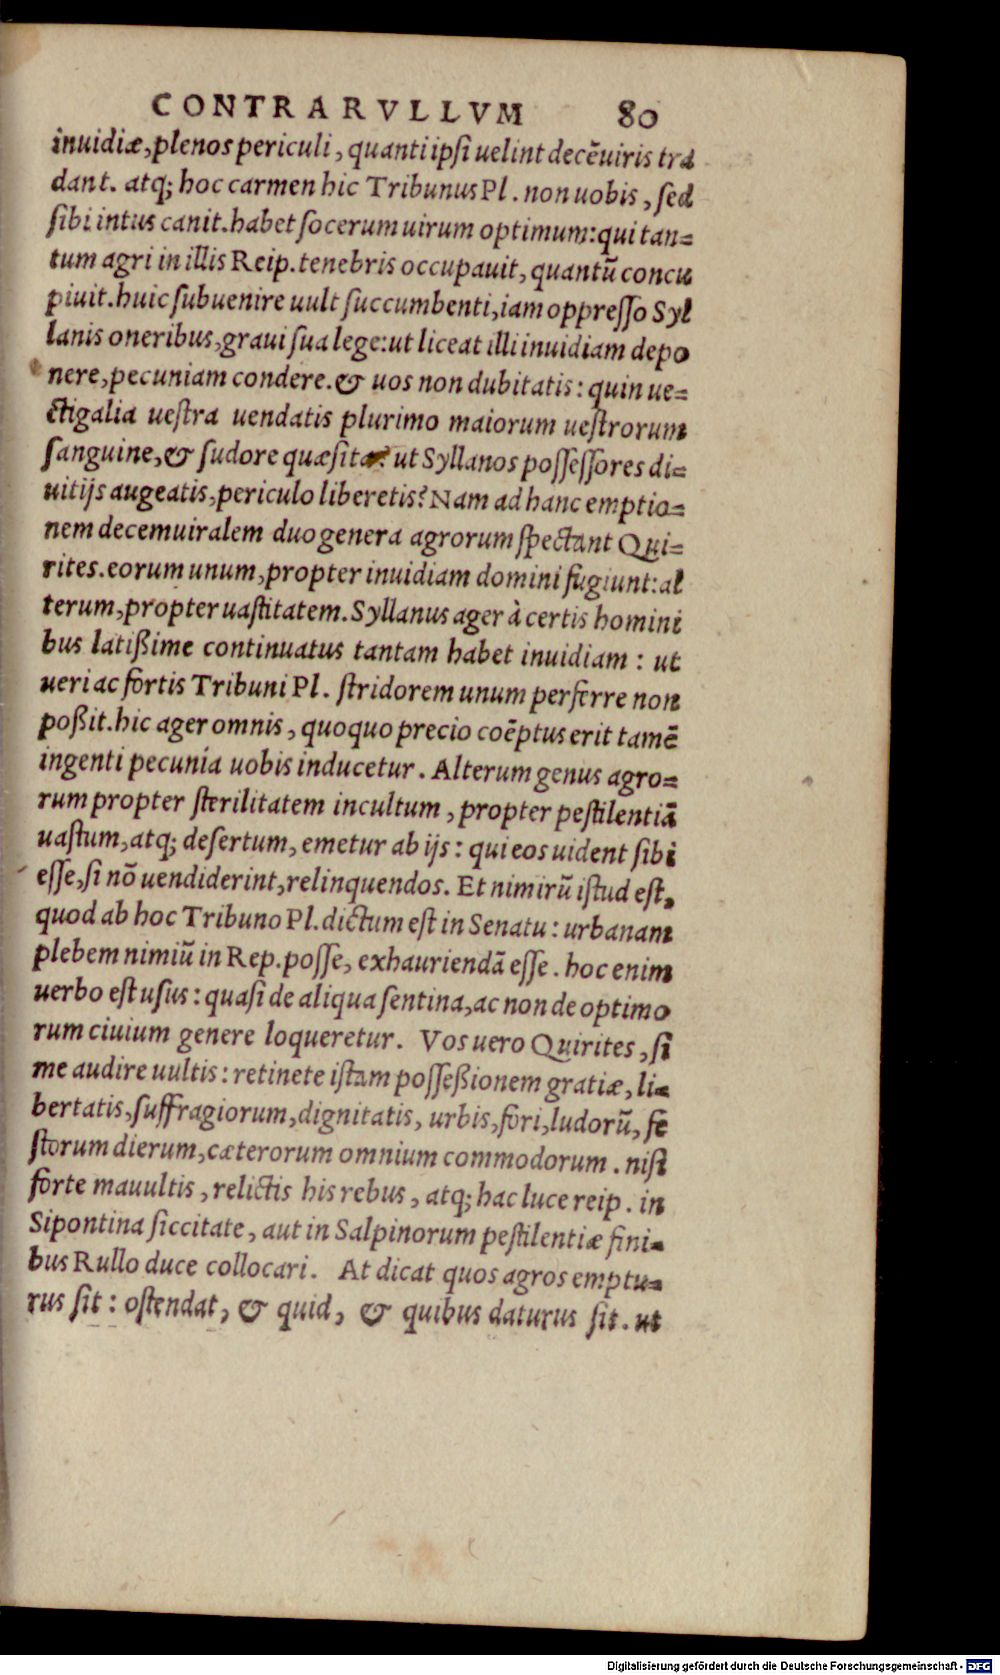 CONTRA RVLLVM 80
inuidiæ, plenos periculi, quanti ipsi uelint decēuiris tra
dant. atq; hoc carmen hic Tribunus Pl. non uobis, sed
sibi intus canit. habet socerum uirum optimum: qui tan=
tum agri in illis Reip. tenebris occupauit, quantū concu
piuit. huic subuenire uult succumbenti, iam oppresso Syl
lanis oneribus, graui sua lege: ut liceat illi inuidiam depo
nere, pecuniam condere. & uos non dubitatis: quin ue=
ctigalia uestra uendatis plurimo maiorum uestrorum
sanguine, & sudore quæsita? ut Syllanos possessores di=
uitijs augeatis, periculo liberetis? Nam ad hanc emptio=
nem decemuiralem duo genera agrorum spectant Qui=
rites. eorum unum, propter inuidiam domini fugiunt: al
terum, propter uastitatem. Syllanus ager à certis homini
bus latißime continuatus tantam habet inuidiam: ut
ueri ac fortis Tribuni Pl. stridorem unum perferre non
poßit. hic ager omnis, quoquo precio coēptus erit tamē
ingenti pecunia uobis inducetur. Alterum genus agro=
rum propter sterilitatem incultum, propter pestilentiā
uastum, atq; desertum, emetur ab ijs: qui eos uident sibi
esse, si nō uendiderint, relinquendos. Et nimirū istud est,
quod ab hoc Tribuno Pl. dictum est in Senatu: urbanam
plebem nimiū in Rep. posse, exhauriendā esse. hoc enim
uerbo est usus: quasi de aliqua sentina, ac non de optimo
rum ciuium genere loqueretur. Vos uero Quirites, si
me audire uultis: retinete istam possessionem gratiæ, li=
bertatis, suffragiorum, dignitatis, urbis, fori, ludorū, fe
storum dierum, cæterorum omnium commodorum. nisi
forte mauultis, relictis his rebus, atq; hac luce reip. in
Sipontina siccitate, aut in Salpinorum pestilentiæ fini=
bus Rullo duce collocari. At dicat quos agros emptu=
rus sit: ostendat, & quid, & quibus daturus sit. ut
Digitalisierung gefördert durch die Deutsche Forschungsgemeinschaft - DFG